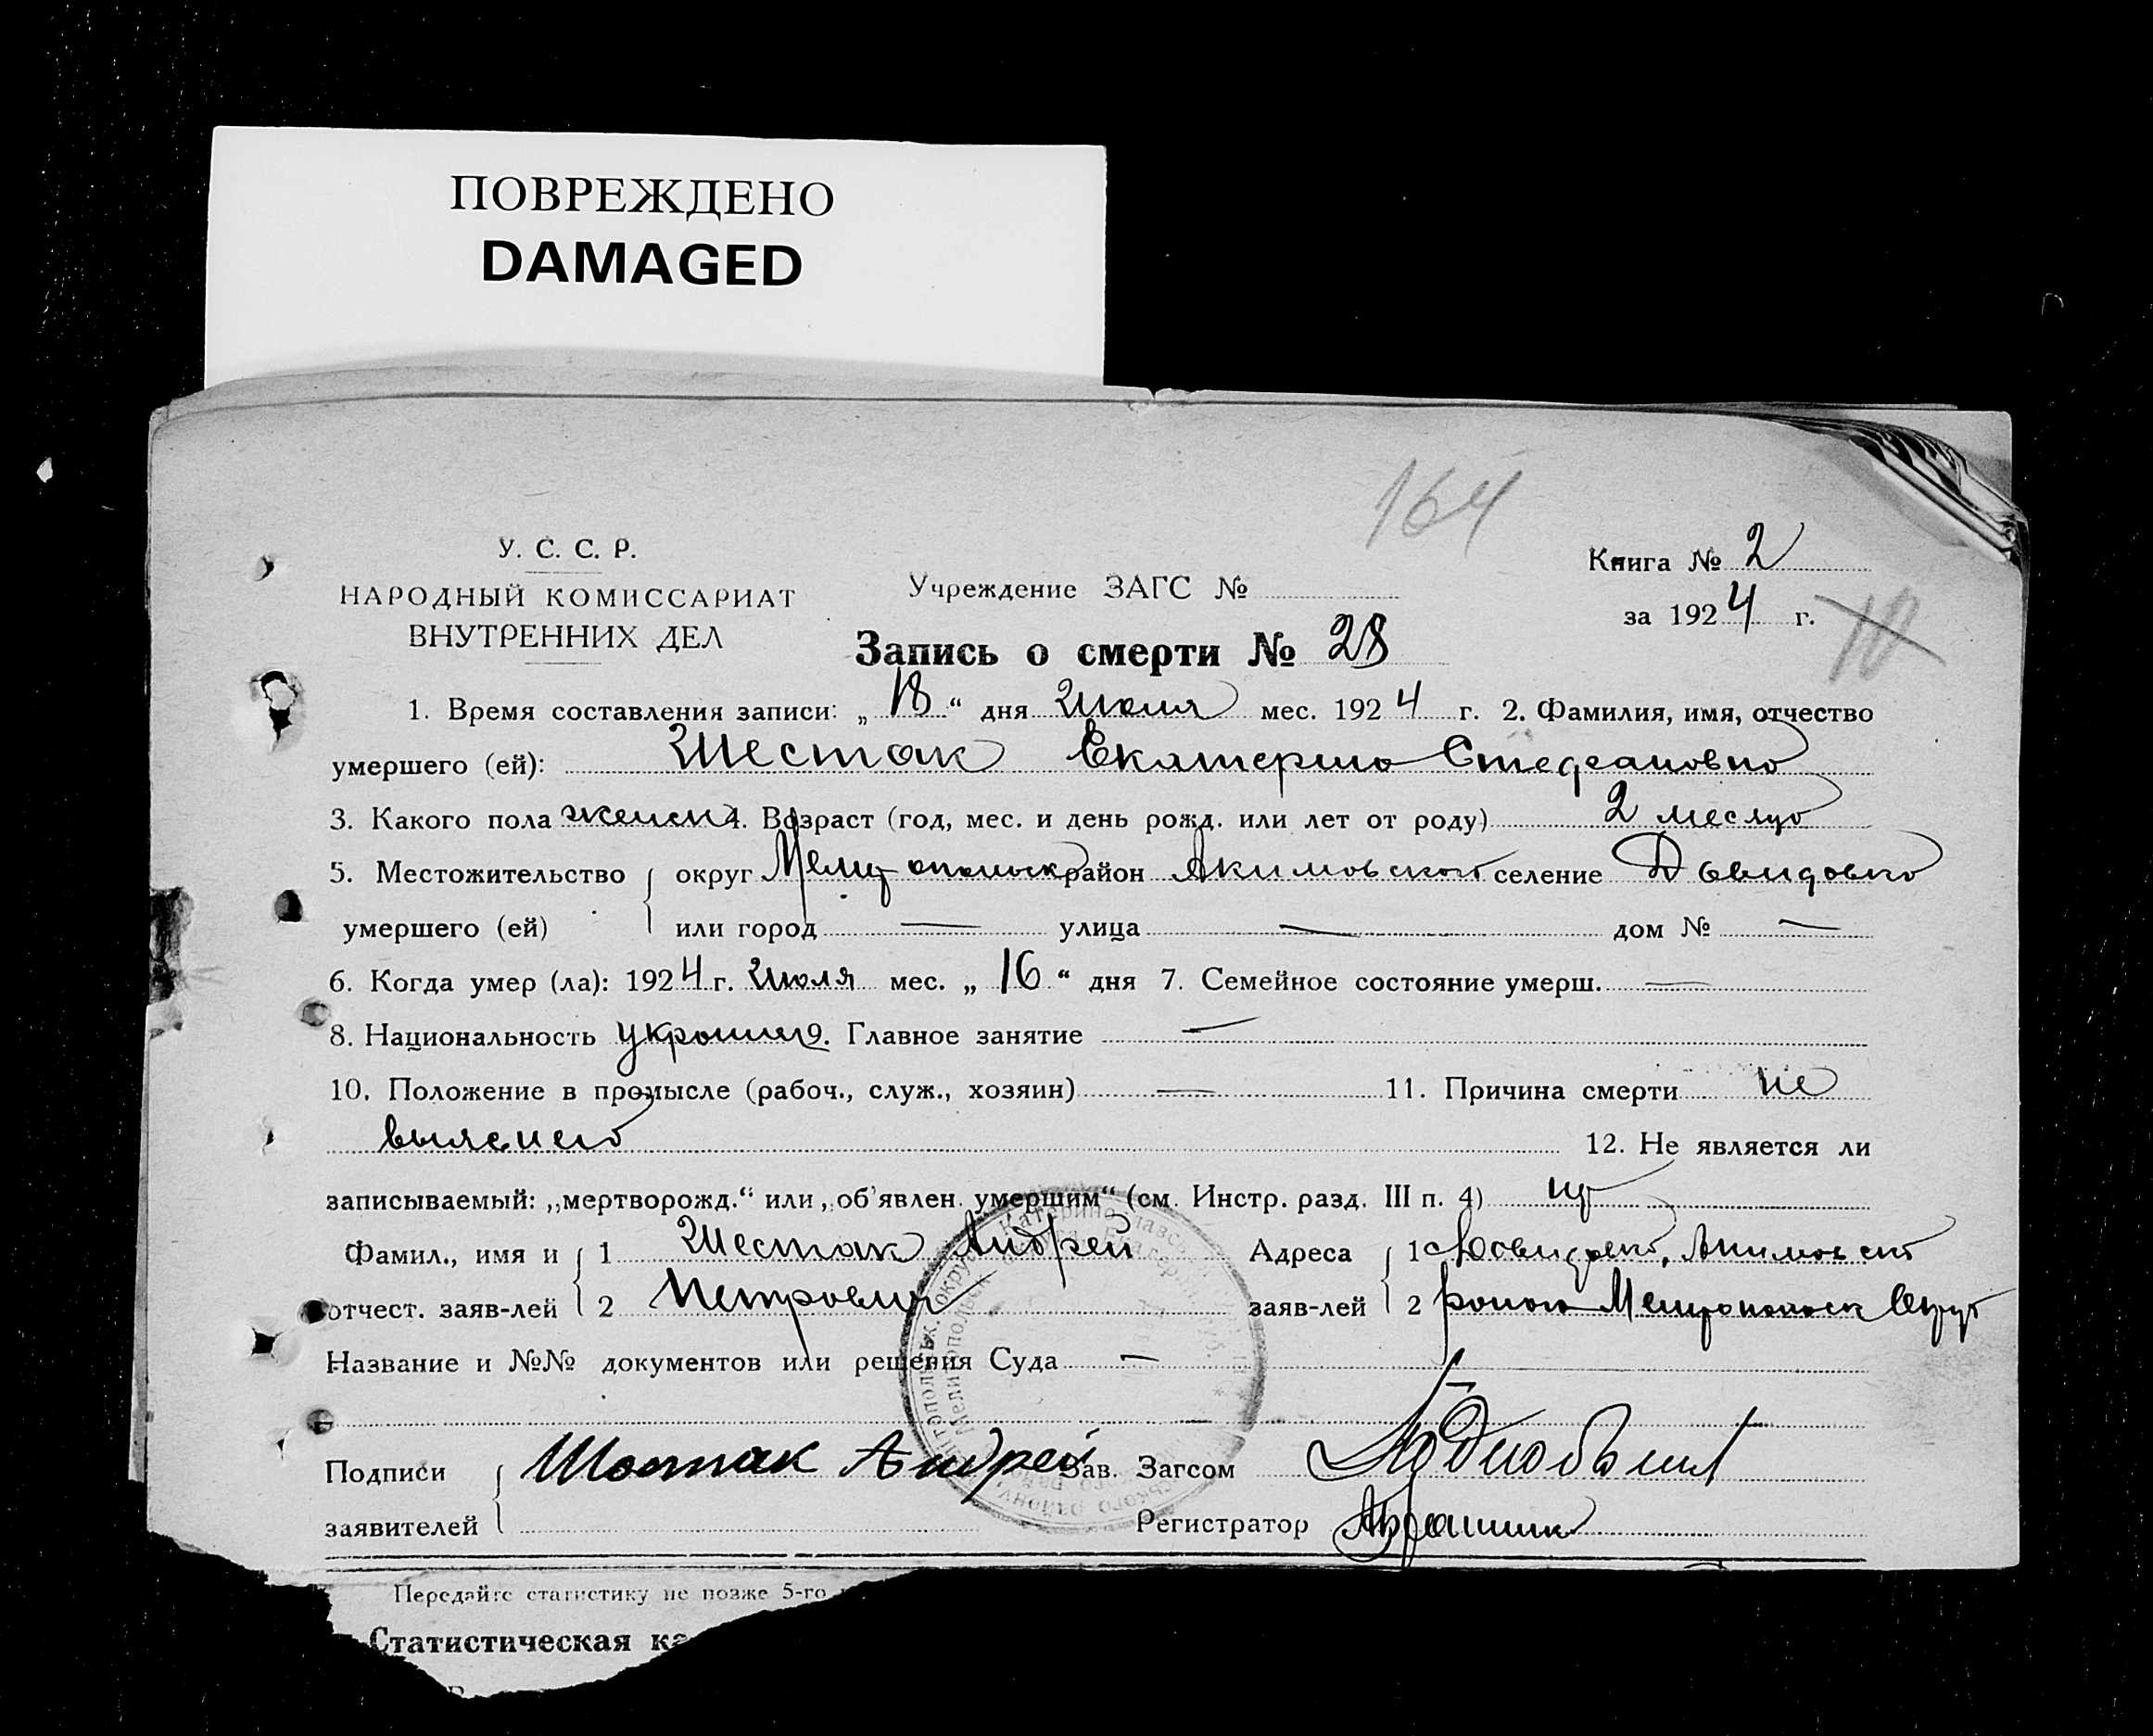 ПОВРЕЖДЕНО
DAMAGED
164
У. С. С. Р.
НАРОДНЫЙ КОМИССАРИАТ
ВНУТРЕННИХ ДЕЛ
Учреждение ЗАГС №
Книга № 2
за 1924 г.
Запись о смерти № 28
1. Время составления записи: „18“ дня Июля мес. 1924 г. 2. Фамилия, имя, отчество
умершего (ей): Шестак Екатерина Стефановна
3. Какого пола женск 4. Возраст (год, мес. и день рожд. или лет от роду) 2 месяца
5. Местожительство умершего (ей) округ Мелитопольск район Акимовский селение Давидовка
или город — улица — дом № —
6. Когда умер (ла): 1924 г. Июля мес. „16“ дня 7. Семейное состояние умерш. —
8. Национальность украин 9. Главное занятие —
10. Положение в промысле (рабоч., служ., хозяин) — 11. Причина смерти не
выяснена 12. Не является ли
записываемый: „мертворожд.“ или „об'явлен. умершим“ (см. Инстр. разд. III п. 4) нет
Фамил., имя и отчест. заяв-лей 1 Шестак Андрей
2 Петрович
Адреса заяв-лей 1 Акимовск
2 района Мелитопольск Округа
Название и №№ документов или решения Суда —
Подписи заявителей Шостак Андрей
Зав. Загсом
Регистратор
Передайте статистику не позже 5-го
Статистическая ка